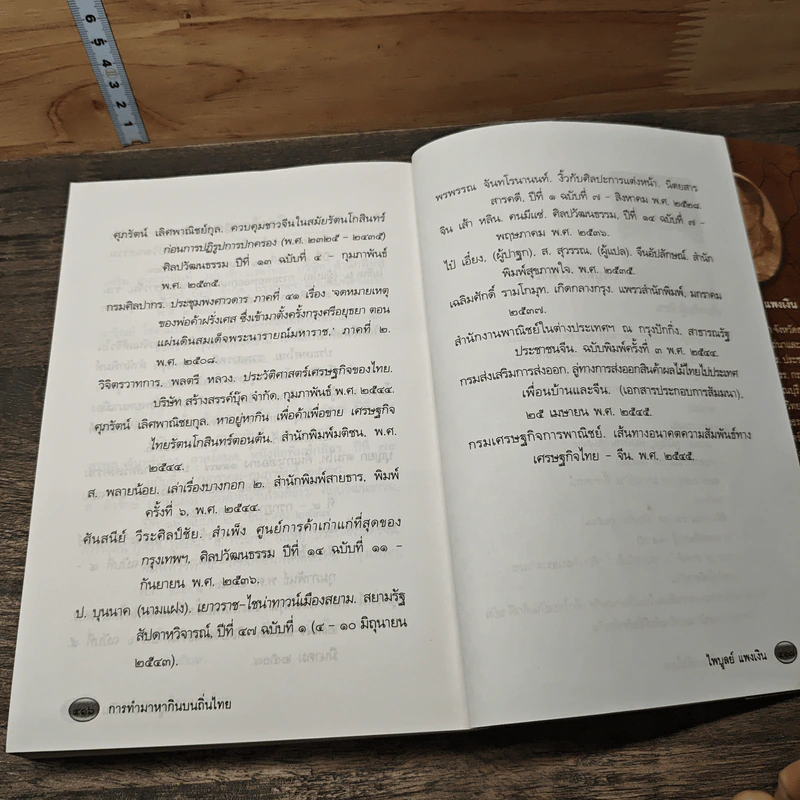 ศุภรัตน์ เลิศพาณิชย์กุล. ควบคุมชาวจีนในสมัยรัตนโกสินทร์
ก่อนการปฏิรูปการปกครอง (พ.ศ. ๒๓๒๕ - ๒๔๓๕)
ศิลปวัฒนธรรม ปีที่ ๑๓ ฉบับที่ ๔ - กุมภาพันธ์
พ.ศ. ๒๕๓๕.
กรมศิลปากร. ประชุมพงศาวดาร ภาคที่ ๔๑ เรื่อง 'จดหมายเหตุ
ของพ่อค้าฝรั่งเศส ซึ่งเข้ามาตั้งครั้งกรุงศรีอยุธยา ตอน
แผ่นดินสมเด็จพระนารายณ์มหาราช.' ภาคที่ ๒.
พ.ศ. ๒๕๐๘.
วิจิตรวาทการ. พลตรี หลวง. ประวัติศาสตร์เศรษฐกิจของไทย.
บริษัท สร้างสรรค์บุ๊ค จำกัด. กุมภาพันธ์ พ.ศ. ๒๕๔๔.
ศุภรัตน์ เลิศพาณิชยกุล. หาอยู่หากิน เพื่อค้าเพื่อขาย เศรษฐกิจ
ไทยรัตนโกสินทร์ตอนต้น. สำนักพิมพ์มติชน. พ.ศ.
๒๕๔๔.
ส. พลายน้อย. เล่าเรื่องบางกอก ๒. สำนักพิมพ์สายธาร, พิมพ์
ครั้งที่ ๖, พ.ศ. ๒๕๔๔.
ศันสนีย์ วีระศิลป์ชัย. สำเพ็ง ศูนย์การค้าเก่าแก่ที่สุดของ
กรุงเทพฯ, ศิลปวัฒนธรรม ปีที่ ๑๔ ฉบับที่ ๑๑ -
กันยายน พ.ศ. ๒๕๓๖.
ป. บุนนาค (นามแฝง). เยาวราช-ไชน่าทาวน์เมืองสยาม. สยามรัฐ
สัปดาหวิจารณ์, ปีที่ ๔๗ ฉบับที่ ๑ (๔ - ๑๐ มิถุนายน
๒๕๔๓).
การทำมาหากินบนถิ่นไทย
พรพรรณ จันทโรนานนท์. งิ้วกับศิลปะการแต่งหน้า. นิตยสาร
สารคดี. ปีที่ ๑ ฉบับที่ ๗ - สิงหาคม พ.ศ. ๒๕๒๘.
จีน เส้า หลิน. คนมีแซ่. ศิลปวัฒนธรรม, ปีที่ ๑๔ ฉบับที่ ๗ -
พฤษภาคม พ.ศ. ๒๕๓๖.
ไป๋ เอี่ยง. (ผู้ปาฐก). ส. สุวรรณ. (ผู้แปล). จีนอัปลักษณ์. สำนัก
พิมพ์สุขภาพใจ. พ.ศ. ๒๕๓๕.
เฉลิมศักดิ์ รามโกมุท. เกิดกลางกรุง. แพรวสำนักพิมพ์, มกราคม
๒๕๓๗.
สำนักงานพาณิชย์ในต่างประเทศฯ ณ กรุงปักกิ่ง. สาธารณรัฐ
ประชาชนจีน. ฉบับพิมพ์ครั้งที่ ๓ พ.ศ. ๒๕๔๔.
กรมส่งเสริมการส่งออก. ลู่ทางการส่งออกสินค้าผลไม้ไทยไปประเทศ
เพื่อนบ้านและจีน. (เอกสารประกอบการสัมมนา).
๒๕ เมษายน พ.ศ. ๒๕๔๕.
กรมเศรษฐกิจการพาณิชย์. เส้นทางอนาคตความสัมพันธ์ทาง
เศรษฐกิจไทย - จีน. พ.ศ. ๒๕๔๕.
ไพบูลย์ แพงเงิน
6 5 4 3 2 1
แพงเงิน